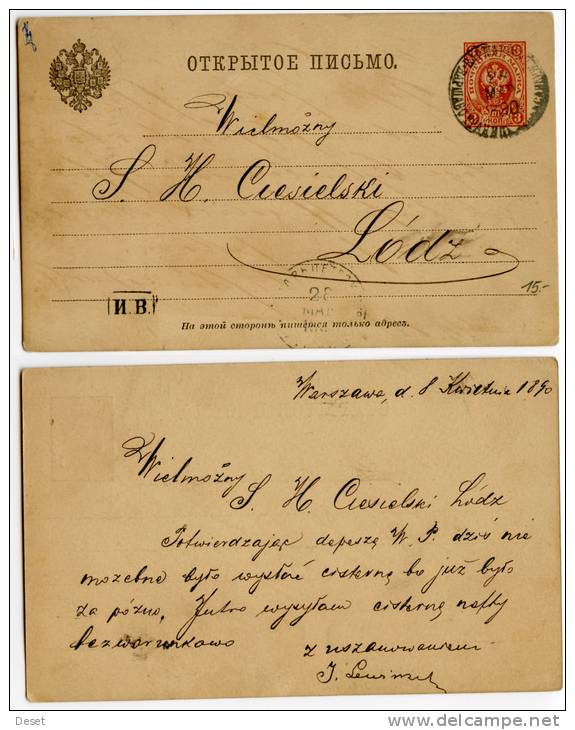 ОТКРЫТОЕ ПИСЬМО.
Wielmożny
S. H. Ciesielski
Łódz
28
МАР
15.-
И.В.
На этой сторонѣ пишется только адресъ.
Warszawa, d. 8 Kwietnia 1890
Wielmożny
S. H. Ciesielski Łodz
Potwierdzając depeszę W. P. dziś nie
możebne było wysłać cisternę bo już było
za późno, Jutro wysyłam cisternę nafty
bezwarunkowo
z uszanowaniem
J.
Deset
www.delcampe.net